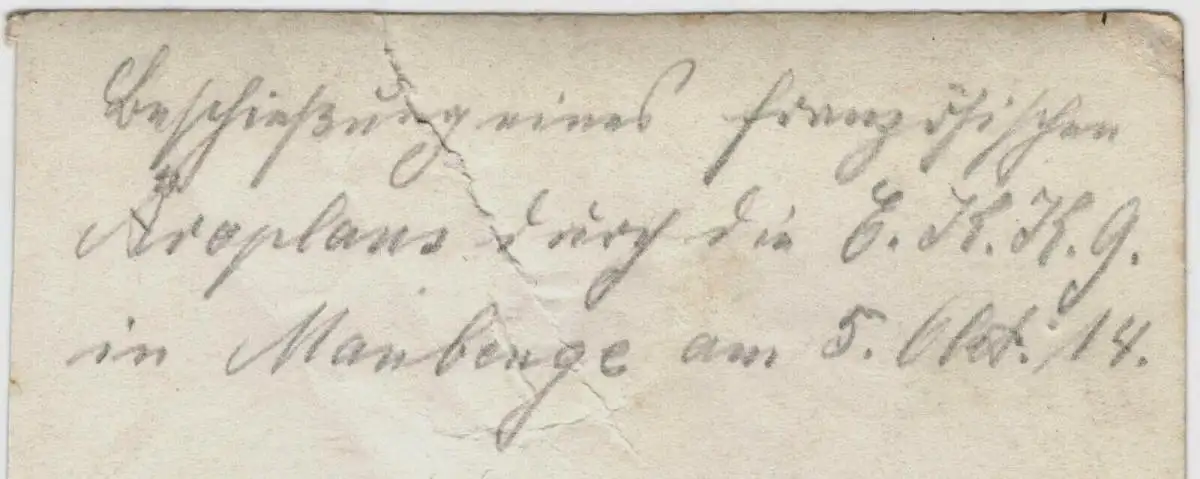 Beschießung eines französischen
Äroplans durch die E. K. K. G.
in Maubeuge am 5. Okt. 14.